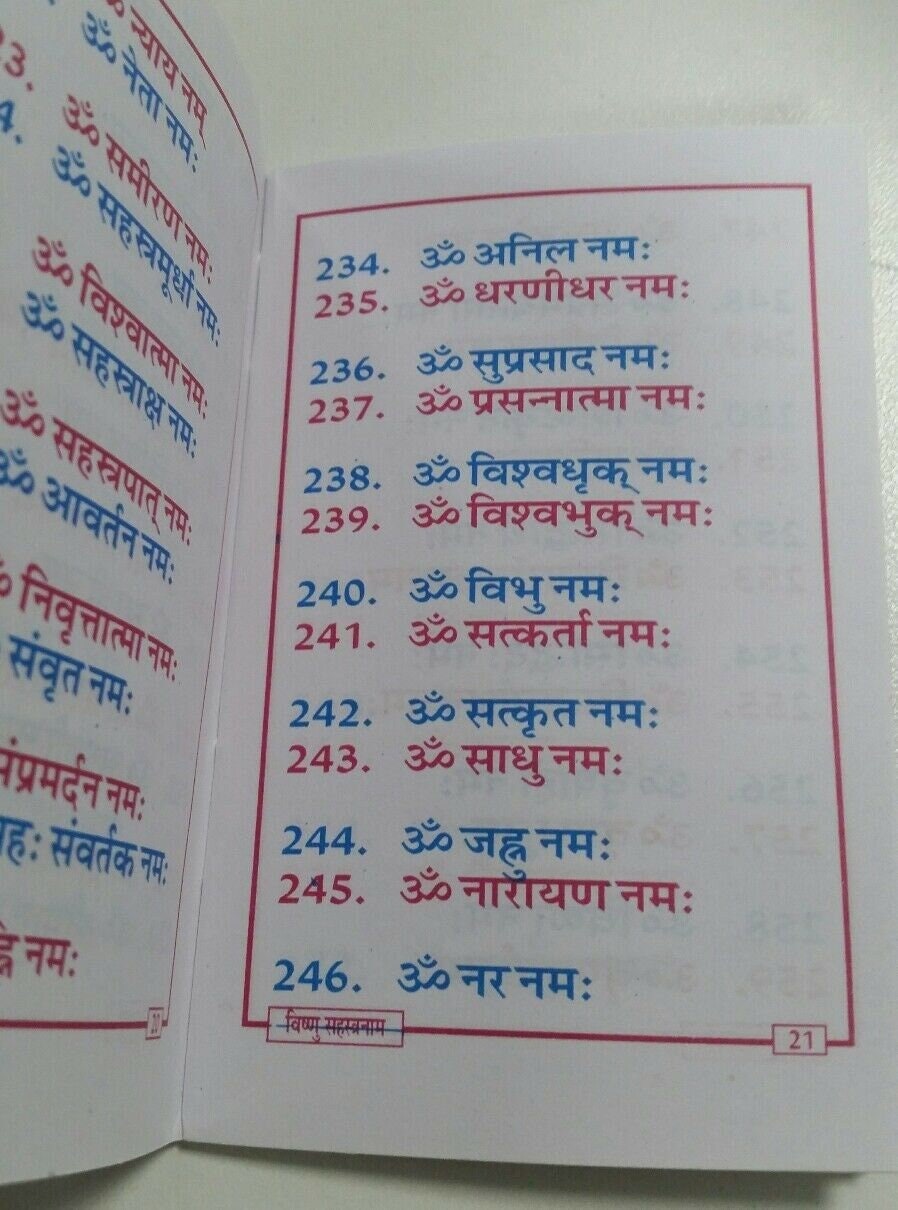 ॐ न्याय नम्
ॐ नेता नमः
ॐ समीरण नमः
ॐ सहस्त्रमूर्धा नमः
ॐ विश्वात्मा नमः
ॐ सहस्त्राक्ष नमः
ॐ सहस्त्रपात् नमः
ॐ आवर्तन नमः
निवृत्तात्मा नमः
संवृत नमः
संप्रमर्दन नमः
संवर्तक नमः
नमः
20
234. ॐ अनिल नमः
235. ॐ धरणीधर नमः
236. ॐ सुप्रसाद नमः
237. ॐ प्रसन्नात्मा नमः
238. ॐ विश्वधृक् नमः
239. ॐ विश्वभुक् नमः
240. ॐ विभु नमः
241. ॐ सत्कर्ता नमः
242. ॐ सत्कृत नमः
243. ॐ साधु नमः
244. ॐ जह्नु नमः
245. ॐ नारायण नमः
246. ॐ नर नमः
विष्णु सहस्त्रनाम
21